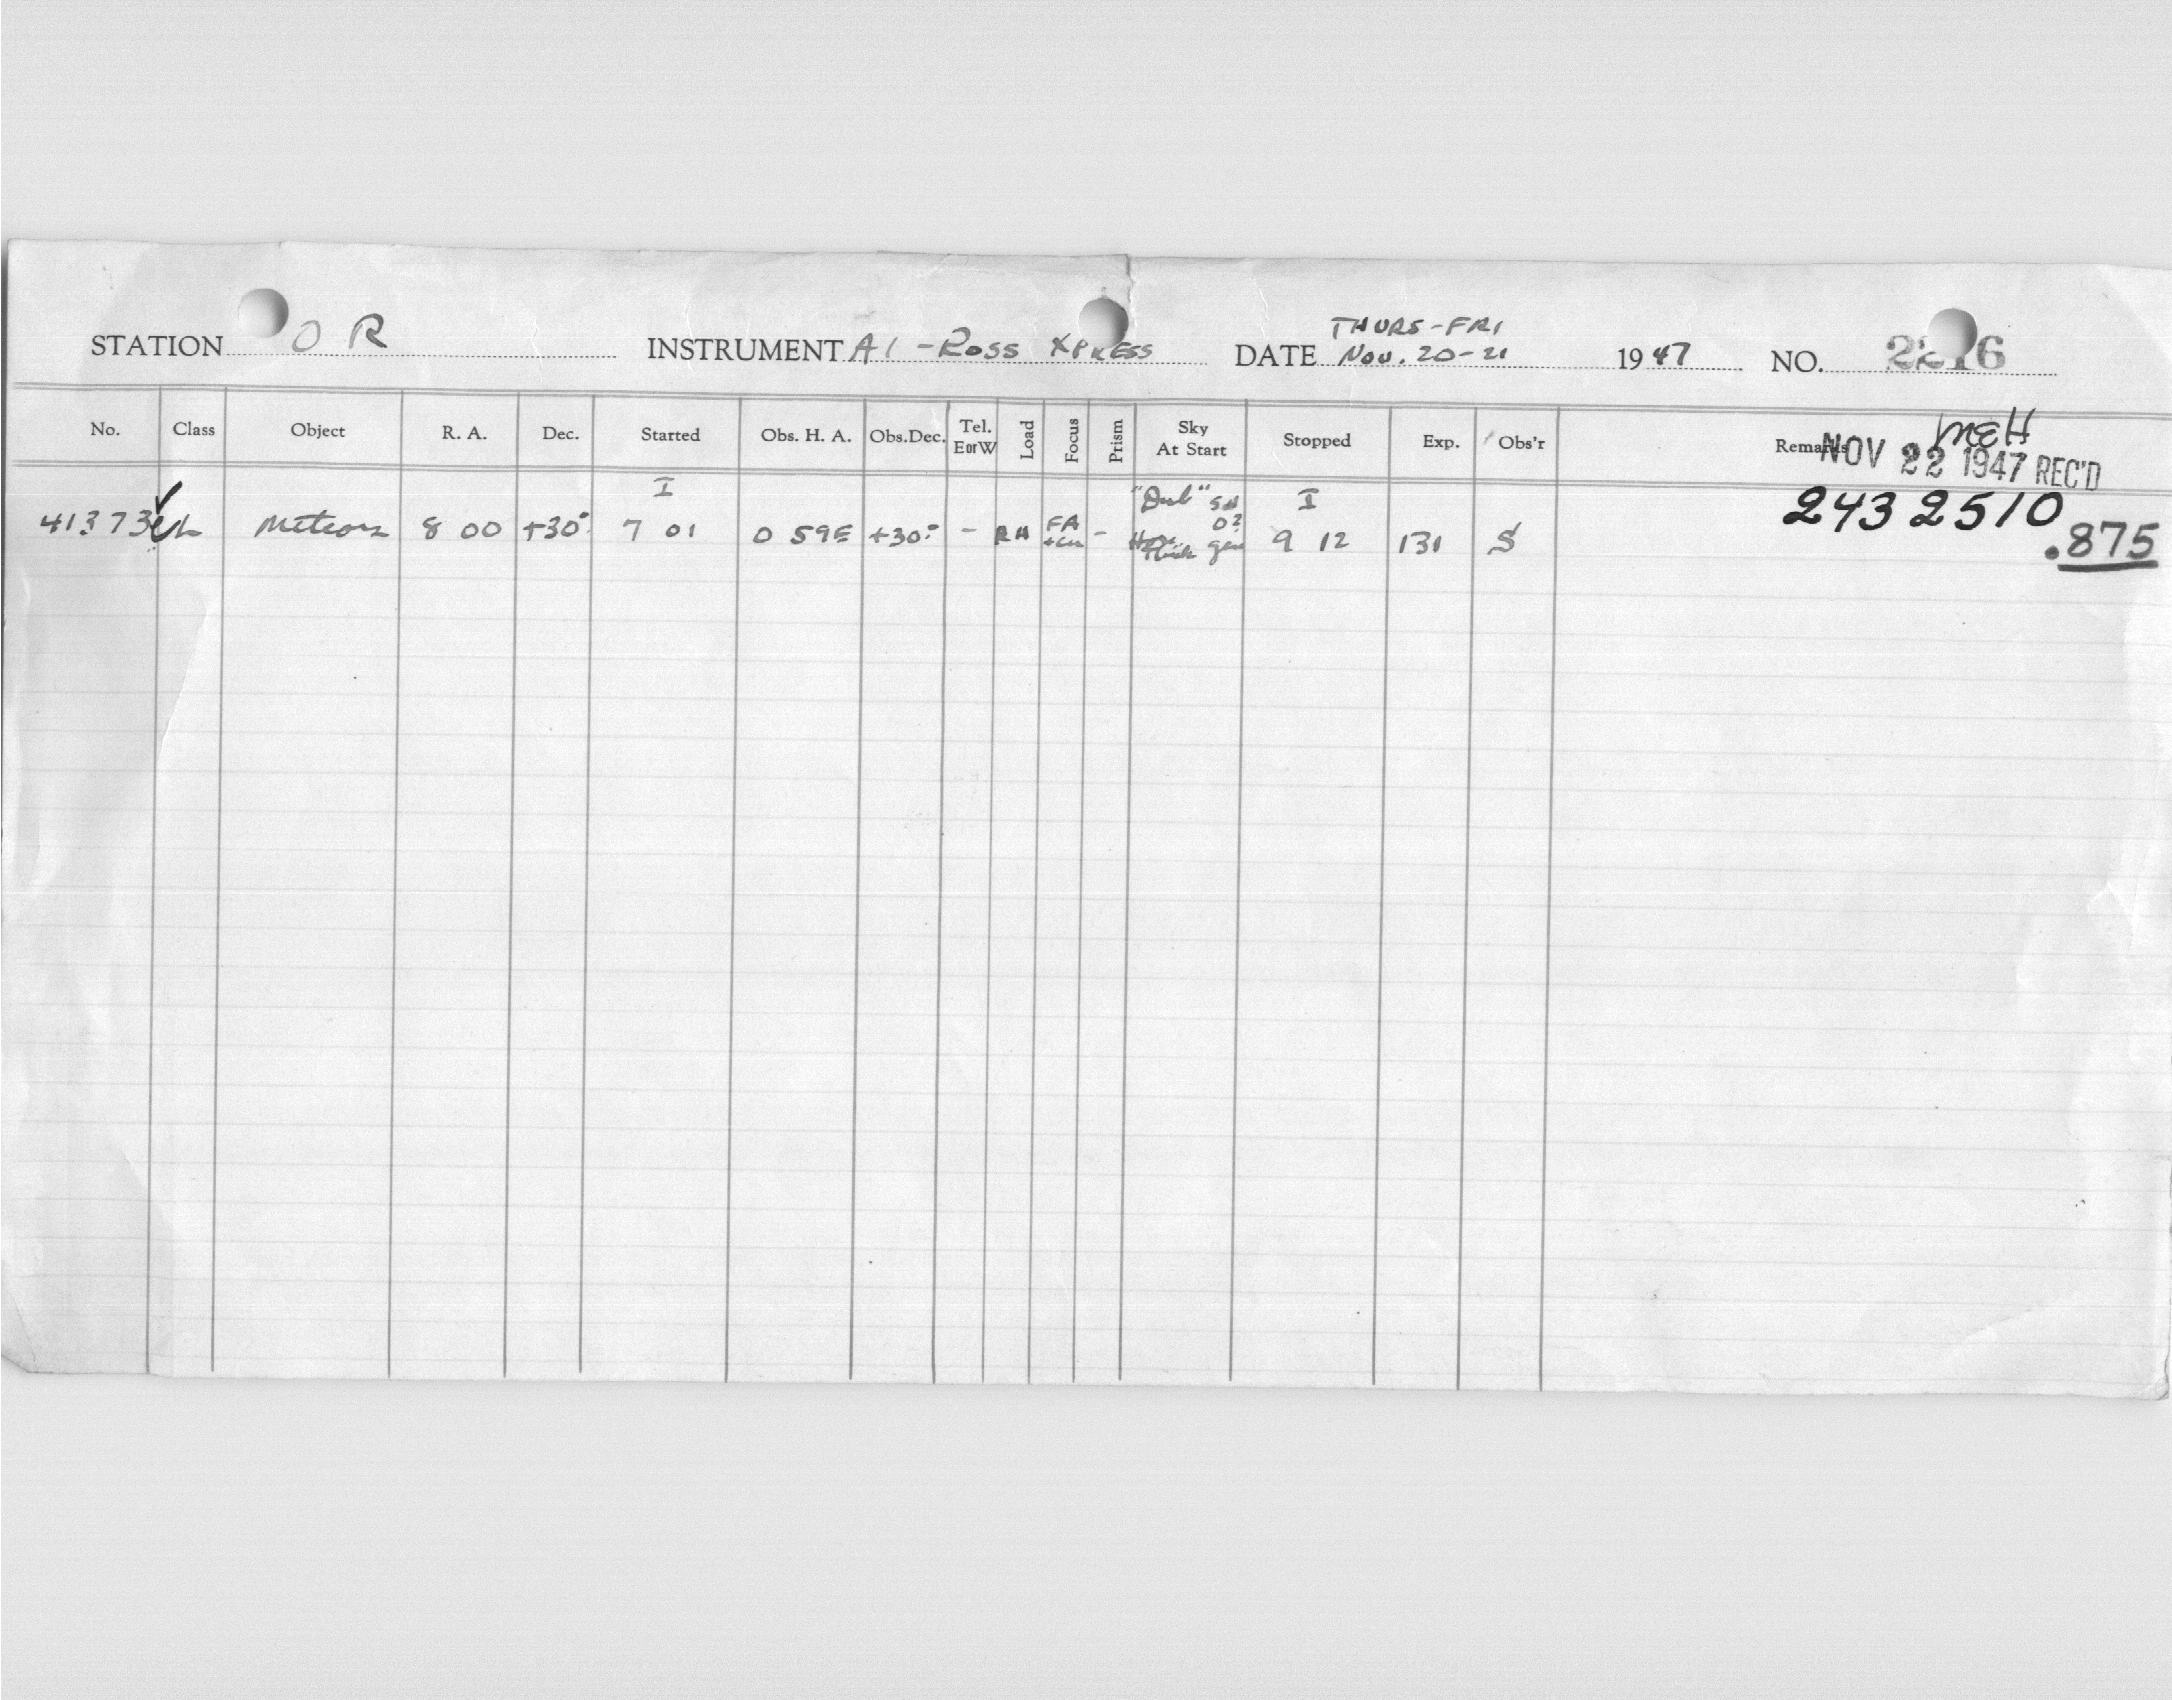 THURS-FRI
STATION O R INSTRUMENT A1 - ROSS XPRESS DATE Nov. 20-21 1947 NO. 2216
No. Class Object R. A. Dec. Started Obs. H. A. Obs.Dec. Tel. E or W Load Focus Prism Sky At Start Stopped Exp. Obs'r Remarks
MEH
NOV 22 1947 REC'D
I I
41373 L Meteors 8 00 +30° 7 01 0 59E +30° - RH FA - 9 12 131 S
243 2510
.875